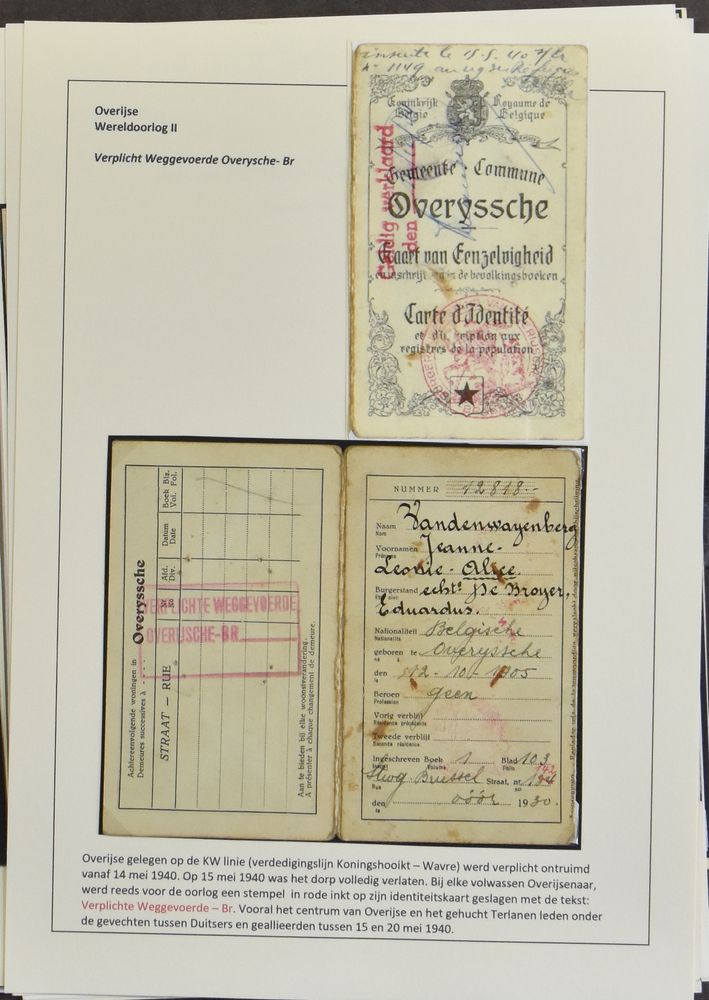 Overijse
Wereldoorlog II
Verplicht Weggevoerde Overysche- Br
le 15.5.40
N° 1149
Koninkrijk Royaume de
België Belgique
Gemeente - Commune
Overyssche
Kaart van Eenzelvigheid
en inschrijving in de bevolkingsboeken
Carte d'Identité
et d'inscription aux
registres de la population
Geldig verklaard
den
Achtereenvolgende woningen in
Demeures successives à
Overyssche
STRAAT — RUE
No
Afd.
Div.
Datum
Date
Boek Blz.
Vol. Fol.
VERPLICHTE WEGGEVOERDE
OVERIJSCHE-BR.
Aan te bieden bij elke woonstverandering.
A présenter à chaque changement de demeure.
NUMMER 12818.-
Naam Vandenwayenberg
Nom
Voornamen Jeanne-
Prénoms
Leonie-Alice
Burgerstand echt. De Broyer,
Eduardus.
Nationaliteit Belgische
Nationalité
geboren te Overyssche
né à
den 12-10-1905
le
Beroep geen
Profession
Vorig verblijf
Résidence précédente
Tweede verblijf
Seconde résidence
Ingeschreven Boek 1 Blad 103
Inscrit Volume Folio
Stwg. Brussel Straat, nr. 134
Rue no
den 1930
le
Overijse gelegen op de KW linie (verdedigingslijn Koningshooikt – Wavre) werd verplicht ontruimd
vanaf 14 mei 1940. Op 15 mei 1940 was het dorp volledig verlaten. Bij elke volwassen Overijsenaar,
werd reeds voor de oorlog een stempel in rode inkt op zijn identiteitskaart geslagen met de tekst:
Verplichte Weggevoerde – Br. Vooral het centrum van Overijse en het gehucht Terlanen leden onder
de gevechten tussen Duitsers en geallieerden tussen 15 en 20 mei 1940.